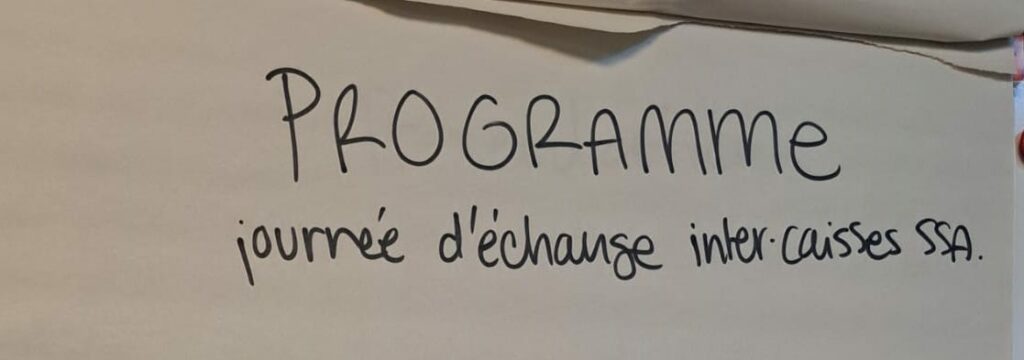 PROGRAMME
journée d'échange inter-caisses SSA.